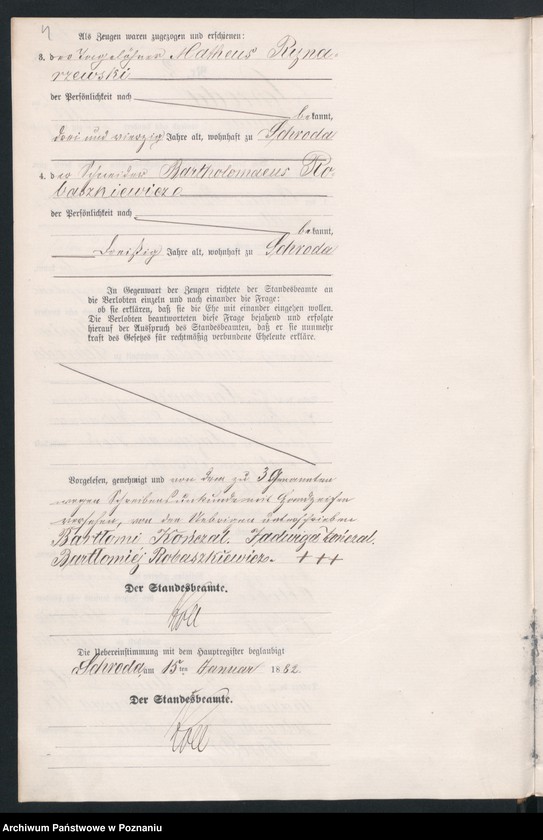 Als Zeugen waren zugezogen und erschienen:
3. der Tagelöhner Matheus Ryna-
rzewski
der Persönlichkeit nach
bekannt,
drei und vierzig Jahre alt, wohnhaft zu Schroda
4. der Schneider Bartholomaeus Ro-
baszkiewicz
der Persönlichkeit nach
bekannt,
dreißig Jahre alt, wohnhaft zu Schroda
In Gegenwart der Zeugen richtete der Standesbeamte an
die Verlobten einzeln und nach einander die Frage:
ob sie erklären, daß sie die Ehe mit einander eingehen wollen.
Die Verlobten beantworteten diese Frage bejahend und erfolgte
hierauf der Ausspruch des Standesbeamten, daß er sie nunmehr
kraft des Gesetzes für rechtmäßig verbundene Eheleute erkläre.
Vorgelesen, genehmigt und von dem zu 3 Genannten
wegen Schreibensunkunde mit Handzeichen
versehen, von den Uebrigen unterschrieben
Bartłomi Konieral. Jadwiga Konieral.
Bartłomiej Robaszkiewicz. +++
Der Standesbeamte.
Die Uebereinstimmung mit dem Hauptregister beglaubigt
Schroda, am 15ten Januar 1882.
Der Standesbeamte.
Archiwum Państwowe w Poznaniu